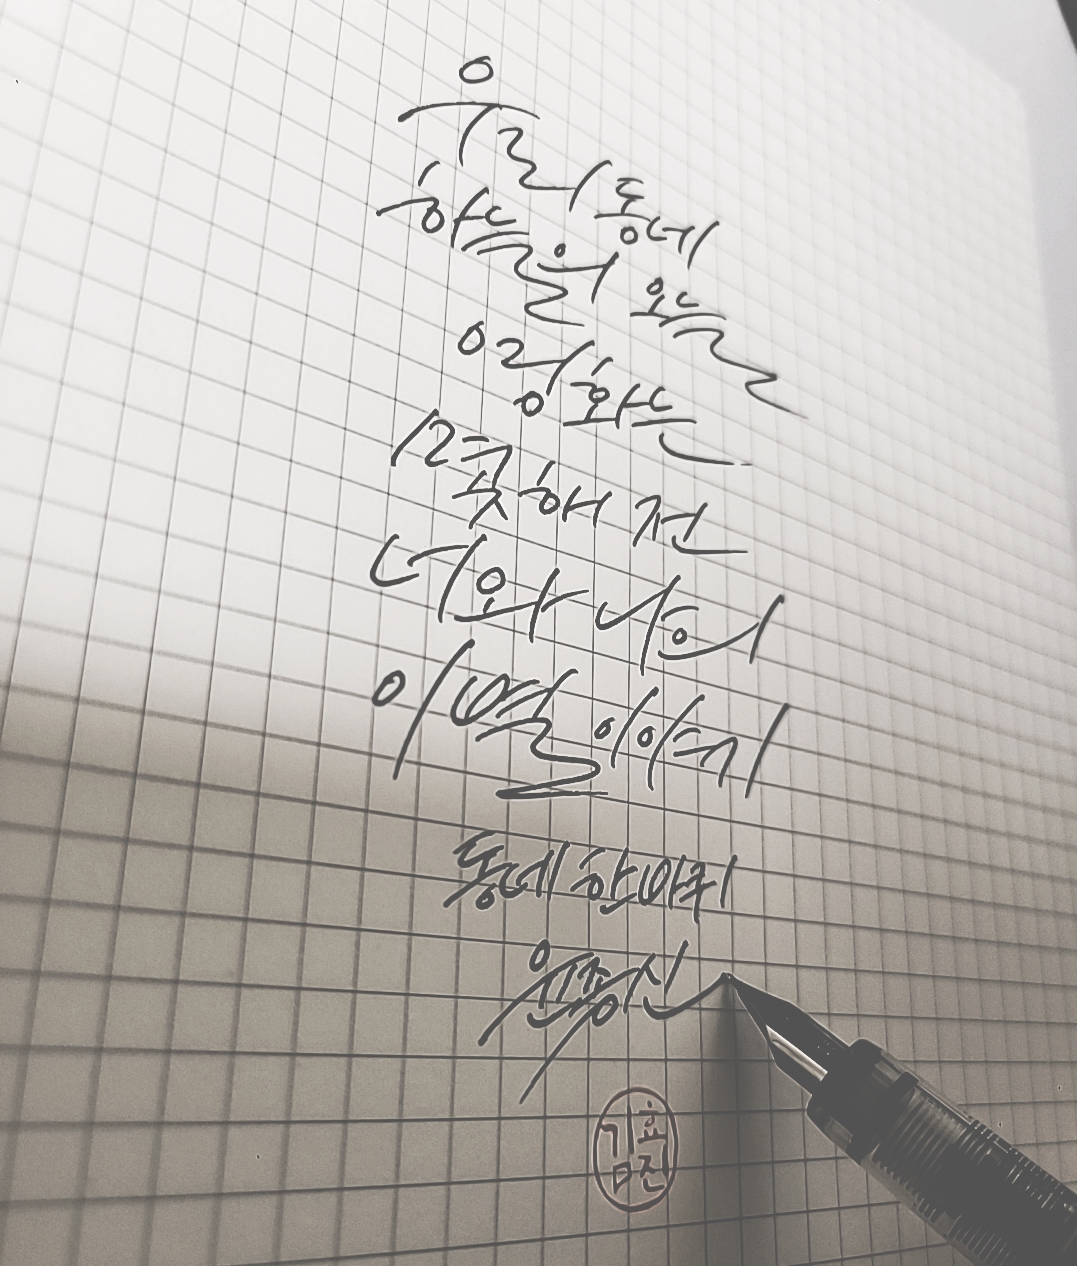 우리 동네
하늘의 오늘
영화는
12곡해 전
너와 나의
이별 이야기
동네 한 바퀴
윤종신
김효진